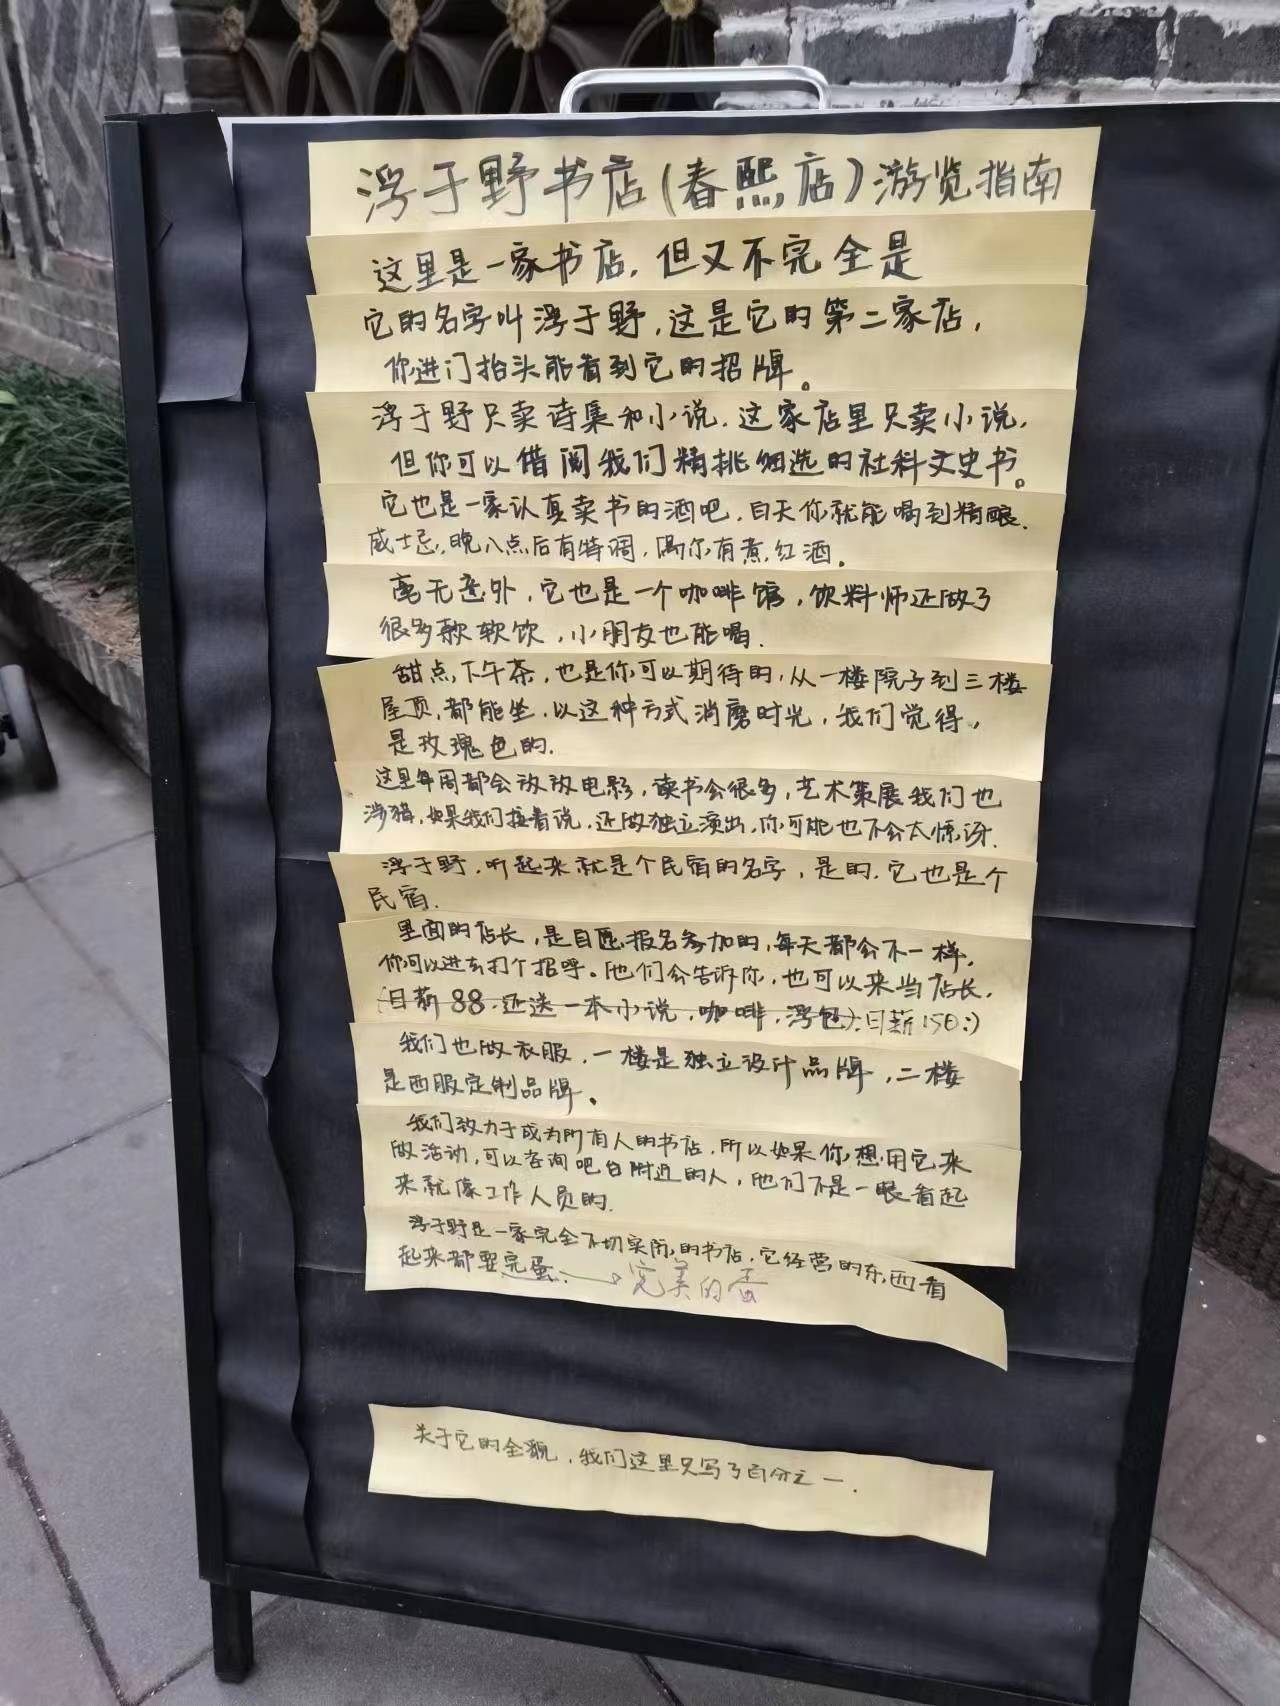 浮于野书店(春熙店)游览指南
这里是一家书店,但又不完全是
它的名字叫浮于野,这是它的第二家店,
你进门抬头能看到它的招牌。
浮于野只卖诗集和小说,这家店里只卖小说,
但你可以借阅我们精挑细选的社科文史书。
它也是一家认真卖书的酒吧,白天你就能喝到精酿,
威士忌,晚八点后有特调,偶尔有煮红酒。
毫无意外,它也是一个咖啡馆,饮料师还做了
很多款软饮,小朋友也能喝.
甜点,下午茶,也是你可以期待的,从一楼院子到三楼
屋顶,都能坐,以这种方式消磨时光,我们觉得,
是玫瑰色的.
这里每周都会放放电影,读书会很多,艺术策展我们也
涉猎,如果我们接着说,还做独立演出,你可能也不会太惊讶.
浮于野,听起来就是个民宿的名字,是的,它也是个
民宿.
里面的店长,是自愿报名参加的,每天都会不一样,
你可以进去打个招呼。他们会告诉你,也可以来当店长,
(日薪88,还送一本小说,咖啡,浮包):日薪150:)
我们也做衣服,一楼是独立设计品牌,二楼
是西服定制品牌。
我们致力于成为所有人的书店,所以如果你想用它来
做活动,可以咨询吧台附近的人,他们不是一眼看起
来就像工作人员的.
浮于野是一家完全不切实际的书店,它经营的东西看
起来都要完蛋.→完美的蛋
关于它的全貌,我们这里只写了百分之一.